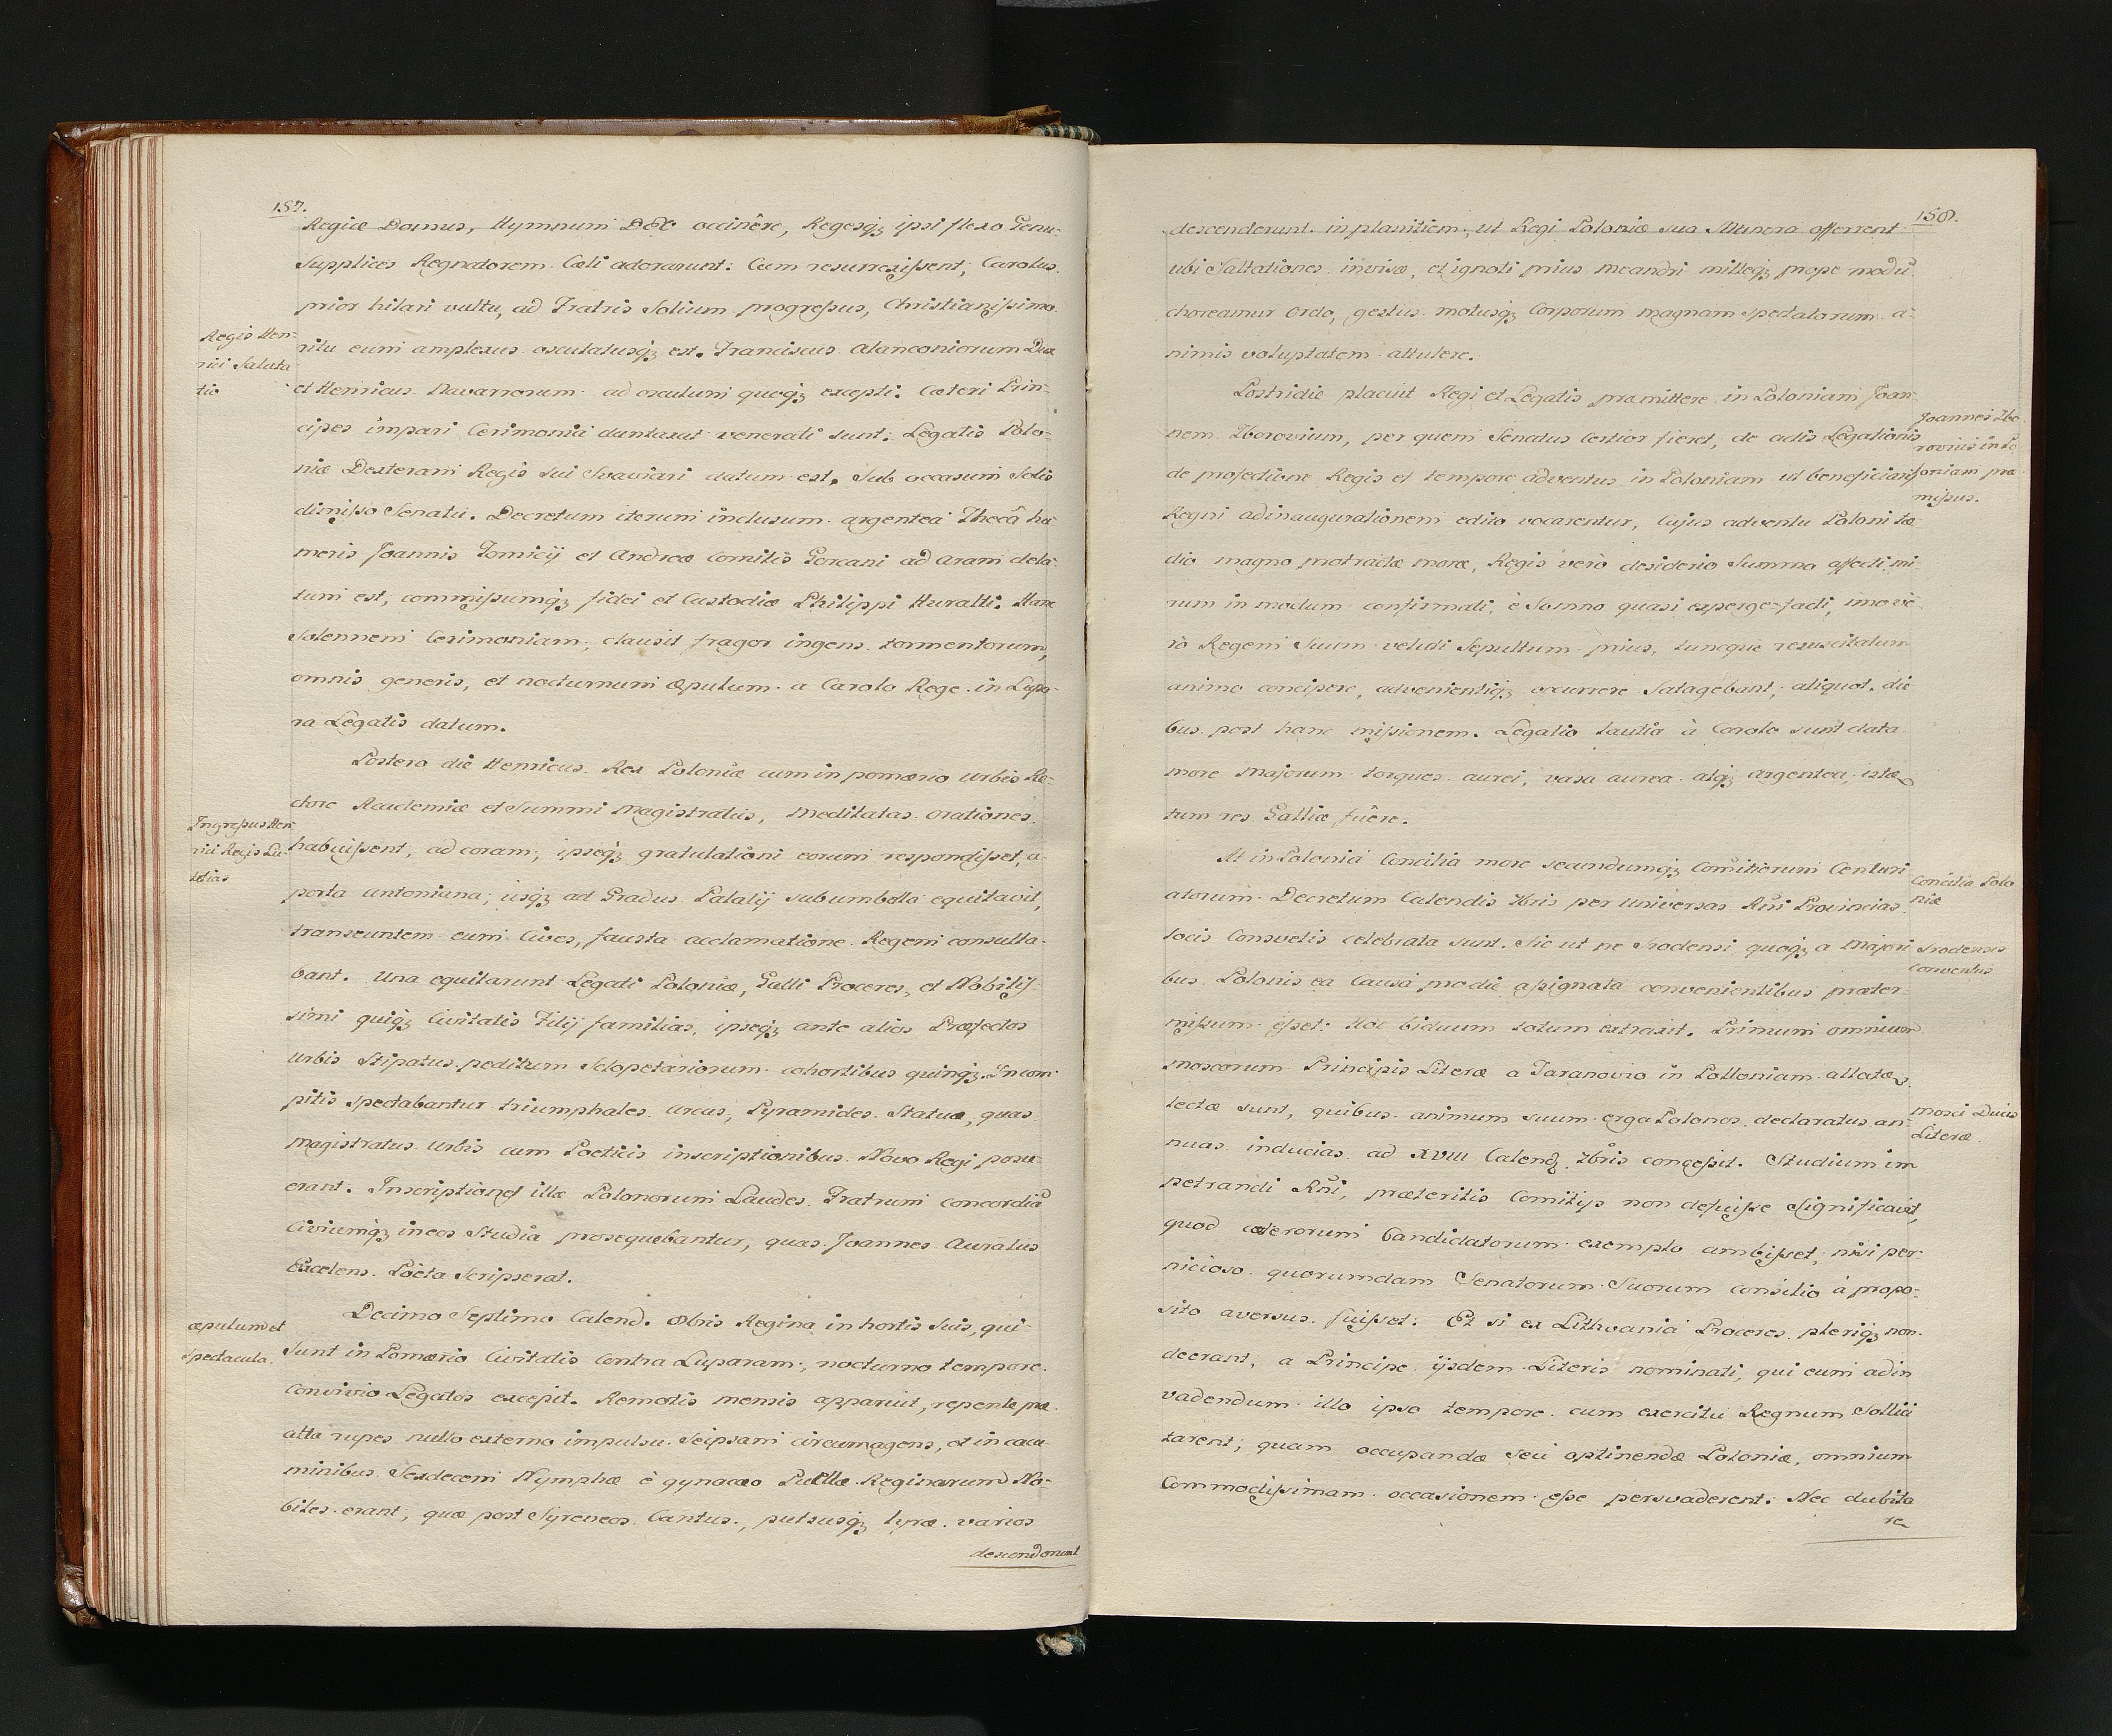 157.
Regiæ Domus, Hymnum D&C occinêre, Regesq₃ ipsi flexo Genu
Supplices Regnatorem Cœli adorarunt: Cum resurrexissent, Carolus
prior hilari vultu, ad Fratris Solium progressus, Christianissimo
ritu eum amplexus osculatusq₃ est. Franciscus Alanconiorum Dux
et Henricus Navarrorum ad osculum quoq₃ excepti. Cæteri Prin-
cipes impari Cerimonia duntaxat venerati sunt: Legatis Polo-
niæ Dexteram Regis sui Svaviari datum est. Sub occasum Solis
dimisso Senatu. Decretum iterum inclusum argenteâ Thecâ hu-
meris Joannis Tomicij et Andreæ Comitis Gorcani ad aram dela-
tum est, commissumq₃ fidei et Custodiæ Philippi Huralti. Hanc
Solennem Cerimoniam, clausit fragor ingens tormentorum,
omnis generis, et nocturnum æpulum a Carolo Rege in Lupa-
ra Legatis datum.
Postero die Henricus Rex Poloniæ cum in pomærio urbis Re-
ctore Academiæ et Summi Magistratus, meditatas orationes
habuissent, ad coram, ipseq₃ gratulationi eorum respondisset, a
porta Antoniana, usq₃ ad Gradus Palatij sub umbella equitavit,
transeuntem eum Cives, fausta acclamatione Regem consulta-
bant. Una equitarunt Legati Poloniæ, Galli Proceres, et Nobilis-
simi quiq₃ Civitatis Filij familias, ipseq₃ ante alios Præfectos
urbis Stipatus peditum Sclopetariorum cohortibus quinq₃. In com-
pitis spectabantur triumphales arcus, Pyramides Statuæ, quas
Magistratus urbis cum Poeticis inscriptionibus Novo Regi posu-
erant. Inscriptiones illæ Polonorum Laudes Fratrum concordiã
Civiumq₃ in eos Studia prosequebantur, quas Joannes Auratus
Excelens Poëta Scripserat.
Decimo Septimo Calend. 8bris Regina in hortis Suis, qui
sunt in Pomærio Civitatis Contra Luparam, nocturno tempore
Convivio Legatos excepit. Remotis mensis apparuit, repente præ
alta rupes nullo externo impulsu Seipsam circumagens, et in cacu-
minibus Sexdecem Nymphæ è gynacæo Puellæ Reginarum No-
biles erant, quæ post Syreneos Cantus, pulsusq₃ lyræ varios
descenderunt
Regis Hen-
rici Saluta
tio
Ingressus Hen
rici Regis Lu-
tetias
æpulum et
Spectacula.
158.
descenderunt in planitiem, ut Regi Poloniæ sua Munera offerrent
ubi Saltationes invisæ, et ignoti prius meandri milleq₃ prope modũ
chorearum Ordo, gestus motusq₃ Corporum magnam Spectatorum a-
nimis voluptatem attulere.
Postridie placuit Regi et Legatis præmittere in Poloniam Joan-
nem Zborovium, per quem Senatus Certior fieret, de actis Legationis
de profectione Regis et tempore adventus in Poloniam ut beneficiarij
Regni ad inaugurationem edito vocarentur, Cujus adventu Poloni tæ
dio magno protractæ moræ, Regis verò desiderio Summo affecti mi
rum in modum confirmati, è Somno quasi experge-facti, imo ve
rò Regem Suum veluti Sepultum prius, tuncque resuscitatum
animo concipere, advenientiq₃ occurrere Satagebant, aliquot die
bus post hanc missionem. Legatio lautia à Carolo sunt data
more Majorum torques aurei, vasa aurea atq₃ argentea, istæ
tum res Galliæ fuêre.
At in Polonia Concilia more secundumq₃ Comitiorum Centuri
atorum Decretum Calendis 7bris per universas Rñi Provincias
locis Consvetis celebrata sunt. Sic ut ne Srodensi quoq₃ a Majori
bus Polonis ea Causa pro die assignata convenientibus præter-
missum esset: Hoc biduum totum extraxit. Primum omnium
Moscorum Principis Literæ a Taranovio in Polloniam allatæ
lectæ sunt, quibus animum suum erga Polonos declaratus an-
nuas inducias ad XVIII Calend. Xbris concessit. Studium im
petrandi Rñi, præteritis Comitijs non defuisse Significavit,
quod cæterorum Candidatorum exemplo ambisset, nisi per-
nicioso quorumdam Senatorum Suorum consilio à propo-
sito aversus fuisset: Et si ex Lithvania Proceres pleriq₃ non
deerant, a Principe ijsdem Literis nominati, qui eum ad in
vadendum illo ipso tempore cum exercitu Regnum Sollici
tarent; quam occupandæ seu optinendæ Poloniæ, omnium
Commodissimam occasionem esse persvaderent. Nec dubita
re
Joannes Zbo
rovius in Po
loniam præ
missus.
Concilia Polo
niæ
Srodenses
Conventus
Mosci Ducis
Literæ